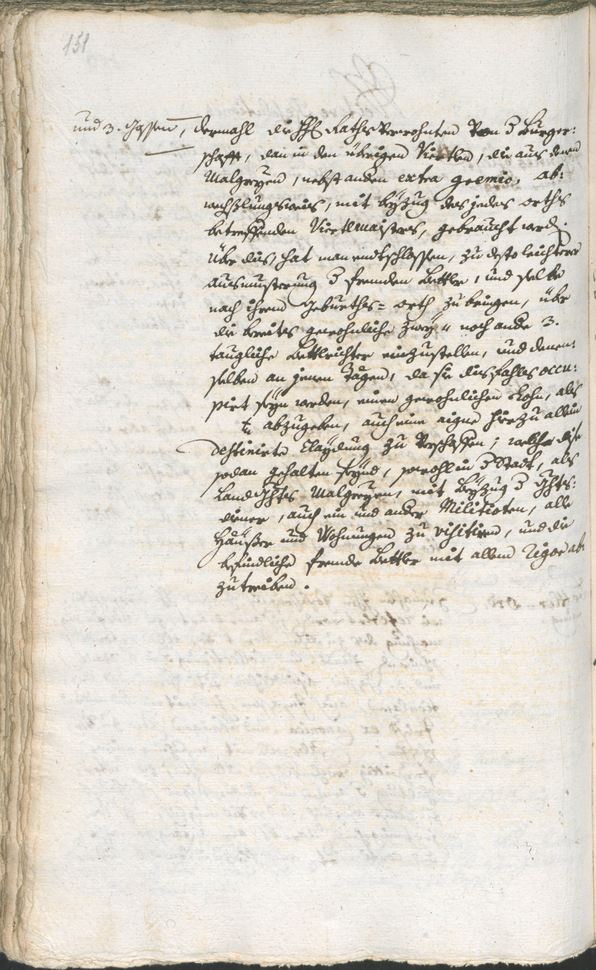 151
und 3. Gassen, dermahl die HH Raths Verwohnten von der Burger-
schafft, dan in den übrigen Viertlen, die aus denen
Malgreyen, nebst anden extra gremio, ab-
wechslungsweis, mit Beyzug des jedes orths
betreffenden Viertlmaisters, gebraucht werden.
Über dies, hat man entschlossen, zu desto leichterer
ausmusterung der frembden Bettler, und selbe
nach ihrem geburths-orth zu bringen, über
die bereits gewohnliche zwey noch ande 3.
taugliche Bettlrichter einzustellen, und denen-
selben an jenen Tägen, da sie diesfahls occu-
pirt seyn werden, einen gewohnlichen Lohn, als
xr. abzugeben, auch eine aigne hierzu allein
destinierte Claydung zu verschaffen; welche diese
sodan gehalten seynd, sowohl in der Stadt, als
Landghts Malgreyen, mit Beyzug der Ghts-
diener, auch ein und ander Militioten, alle
Häußer und Wohnungen zu visitiren, und die
befindliche fremde Bettler mit allem Rigor ab-
zutreiben.